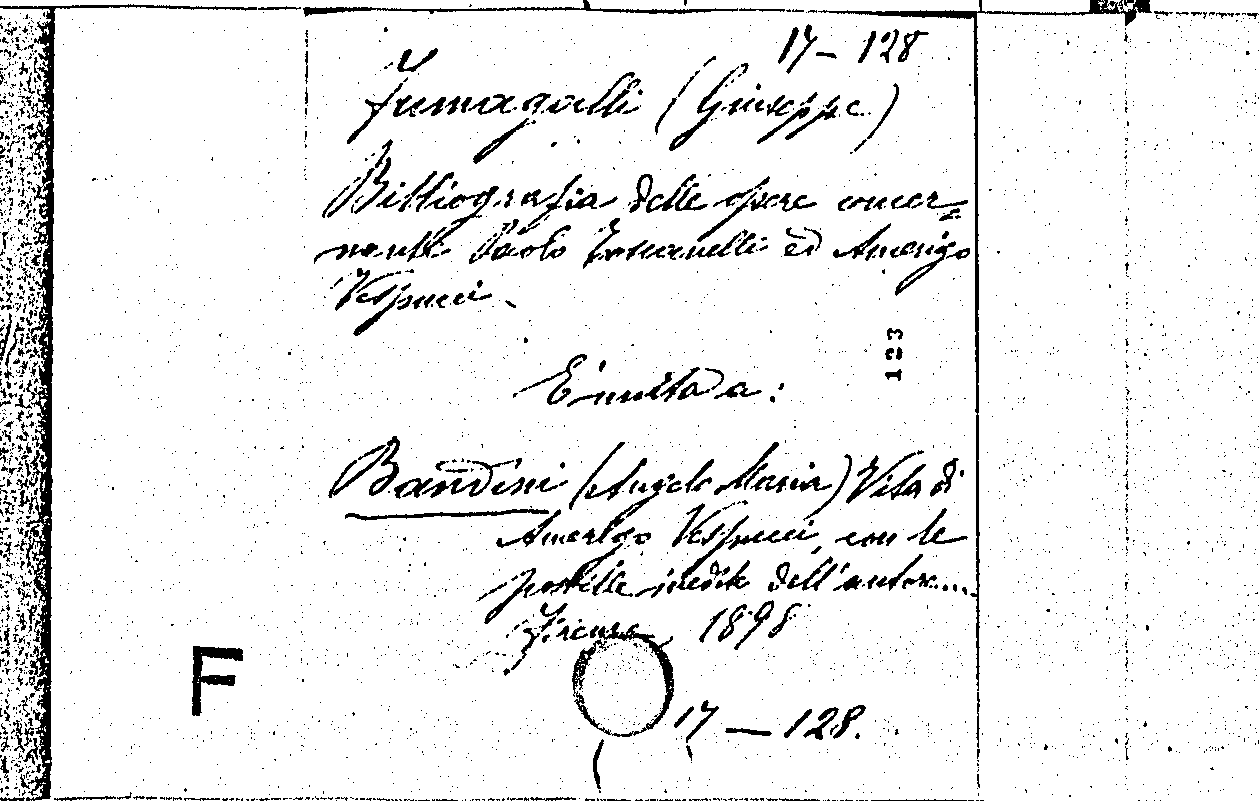 17 - 128
Fumagalli (Giuseppe)
Bibliografia delle opere concer=
nenti Paolo Toscanelli ed Amerigo
Vespucci.
123
È unita a:
Bandini (Angelo Maria) Vita di
Amerigo Vespucci, con le
postille inedite dell'autore....
Firenze, 1898
F
17 — 128.